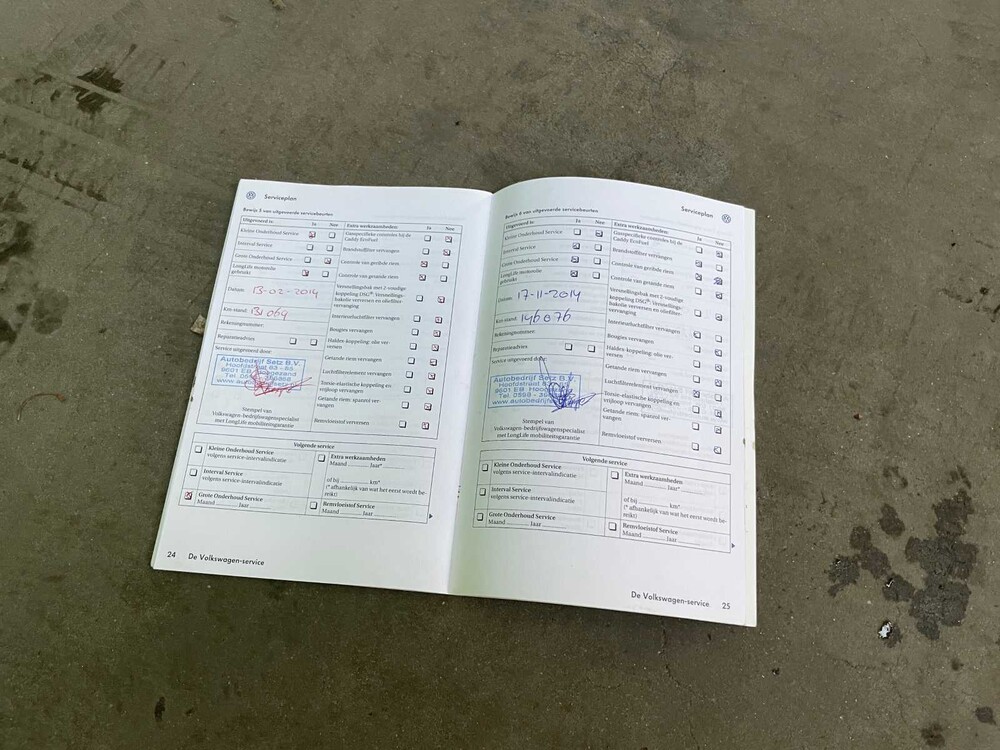 Serviceplan
Bewijs 5 van uitgevoerde servicebeurten
Uitgevoerd is: Ja Nee
Kleine Onderhoud Service
Interval Service
Grote Onderhoud Service
LongLife motorolie
gebruikt
Datum: 13-02-2014
Km-stand: 131 069
Rekeningnummer:
Reparatieadvies
Service uitgevoerd door:
Autobedrijf Setz B.V.
Hoofdstraat 83 - 85
Stempel van
Volkswagen-bedrijfswagenspecialist
met LongLife mobiliteitsgarantie
Extra werkzaamheden: Ja Nee
Gasspecifieke controles bij de
Caddy EcoFuel
Brandstoffilter vervangen
Controle van geribde riem
Controle van getande riem
Versnellingsbak met 2-voudige
koppeling DSG®: Versnellings-
bakolie verversen en oliefilter-
vervanging
Interieurluchtfilter vervangen
Bougies vervangen
Haldex-koppeling: olie ver-
versen
Getande riem vervangen
Luchtfilterelement vervangen
Torsie-elastische koppeling en
vrijloop vervangen
Getande riem: spanrol ver-
vangen
Remvloeistof verversen
Volgende service
Kleine Onderhoud Service
volgens service-intervalindicatie
Interval Service
volgens service-intervalindicatie
Grote Onderhoud Service
Maand ........ Jaar ........
Extra werkzaamheden
Maand ........ Jaar*........
of bij ........ km*
(* afhankelijk van wat het eerst wordt be-
reikt)
Remvloeistof Service
Maand ........ Jaar ........
24 De Volkswagen-service
Serviceplan
Bewijs 6 van uitgevoerde servicebeurten
Uitgevoerd is: Ja Nee
Kleine Onderhoud Service
Interval Service
Grote Onderhoud Service
LongLife motorolie
gebruikt
Datum: 17-11-2014
Km-stand: 146076
Rekeningnummer:
Reparatieadvies
Service uitgevoerd door:
Autobedrijf Setz B.V.
Stempel van
Volkswagen-bedrijfswagenspecialist
met LongLife mobiliteitsgarantie
Extra werkzaamheden: Ja Nee
Gasspecifieke controles bij de
Caddy EcoFuel
Brandstoffilter vervangen
Controle van geribde riem
Controle van getande riem
Versnellingsbak met 2-voudige
koppeling DSG®: Versnellings-
bakolie verversen en oliefilter-
vervanging
Interieurluchtfilter vervangen
Bougies vervangen
Haldex-koppeling: olie ver-
versen
Getande riem vervangen
Luchtfilterelement vervangen
Torsie-elastische koppeling en
vrijloop vervangen
Getande riem: spanrol ver-
vangen
Remvloeistof verversen
Volgende service
Kleine Onderhoud Service
volgens service-intervalindicatie
Interval Service
volgens service-intervalindicatie
Grote Onderhoud Service
Maand ........ Jaar ........
Extra werkzaamheden
Maand ........ Jaar*........
of bij ........ km*
(* afhankelijk van wat het eerst wordt be-
reikt)
Remvloeistof Service
Maand ........ Jaar ........
De Volkswagen-service 25